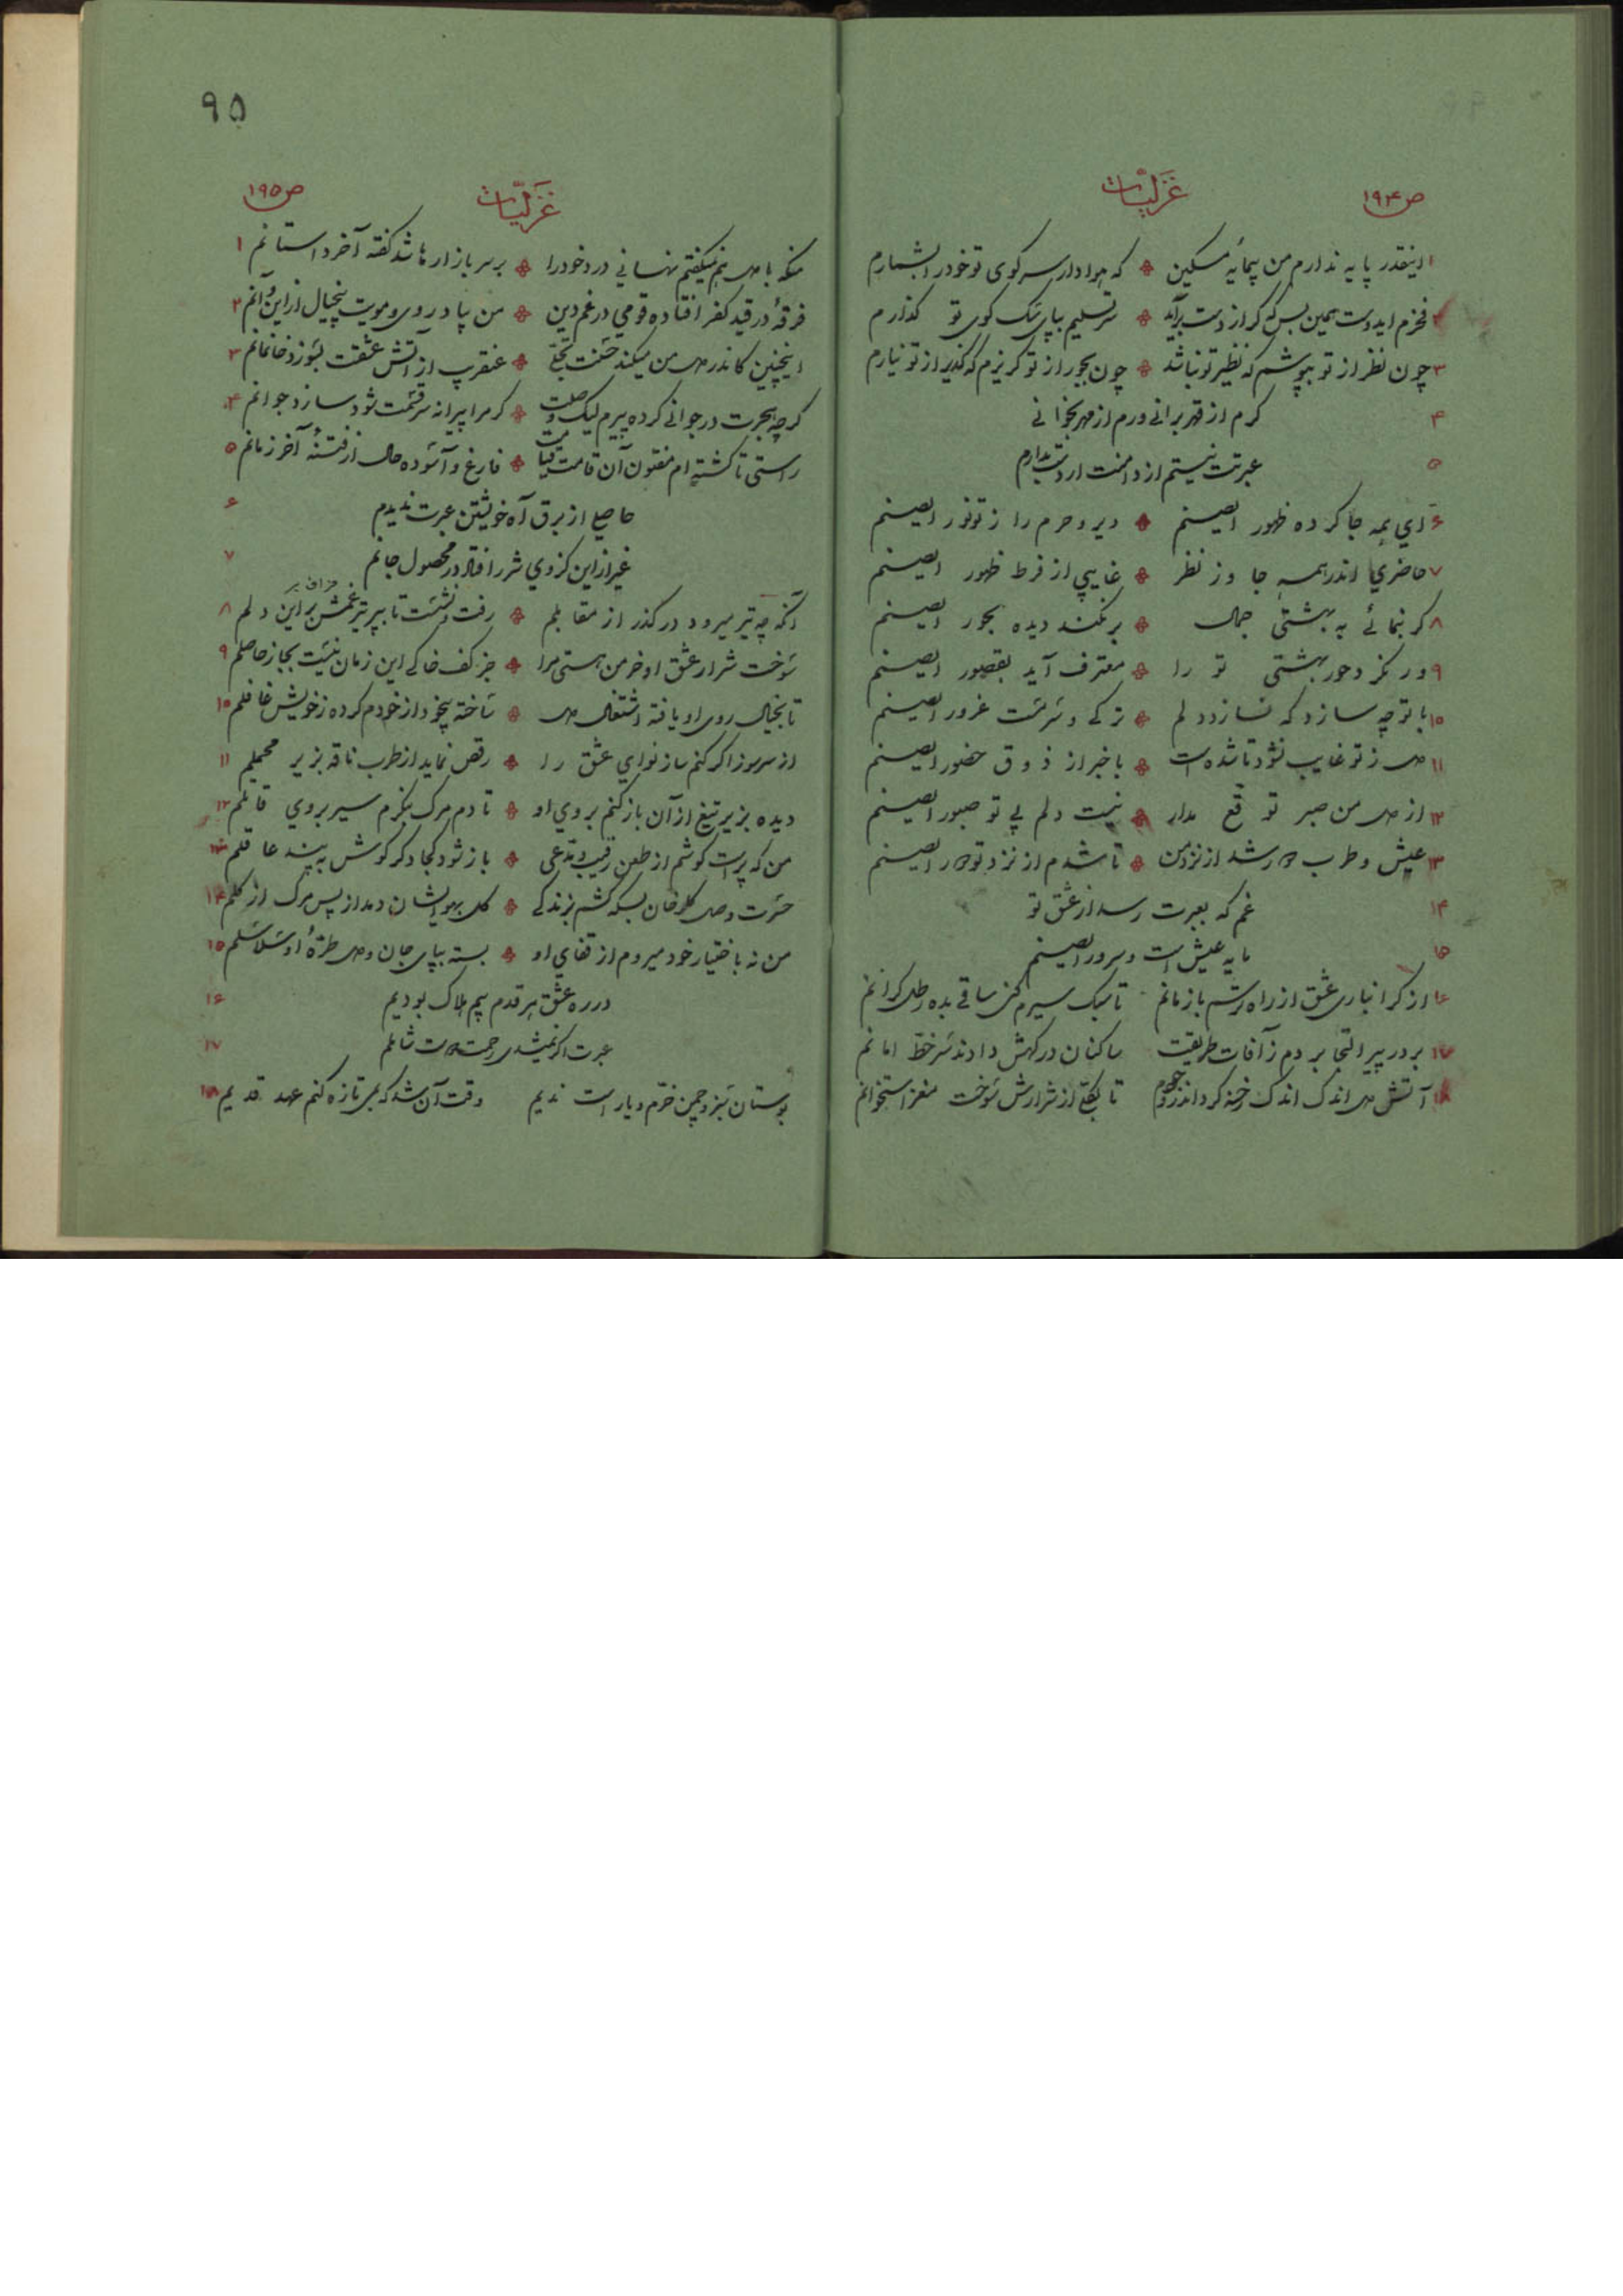 ص ۱۹۴ غزلیات
۱ اینقدر پایه ندارم من بیمایه مسکین ❖ که هوادار سر کوی تو خود را بشمارم
۲ فخرم ایدوست همین بس که گر از دست برآید ❖ سر تسلیم بپای سگ کوی تو گذارم
۳ چون نظر از تو بپوشم که نظیر تو نباشد ❖ چون بجور از تو گریزم که گذیر از تو نیارم
۴ گرم از قهر برانی ورم از مهر بخوانی
۵ عبرتت نیستم از دامنت ار دست بدارم
۶ ای بهمه جا کرده ظهور ایصنم ❖ دیر و حرم را ز تو نور ایصنم
۷ حاضری اندر همه جا وز نظر ❖ غایبی از فرط ظهور ایصنم
۸ گر بنمائی به بهشتی جمال ❖ برنکند دیده بحور ایصنم
۹ ور نگرد حور بهشتی تو را ❖ معترف آید بقصور ایصنم
۱۰ با تو چه سازد که نسازد دلم ❖ ترکی و سرمست غرور ایصنم
۱۱ دل ز تو غایب نشود تا شده است ❖ باخبر از ذوق حضور ایصنم
۱۲ از دل من صبر توقع مدار ❖ نیست دلم بی تو صبور ایصنم
۱۳ عیش و طرب دور شد از نزد من ❖ تا شدم از نزد تو دور ایصنم
۱۴ غم که بعبرت رسد از عشق تو
۱۵ مایه عیش است و سرور ایصنم
۱۶ از گرانباری عشق از راه ترسم بازمانم تا سبک سیرم کنی ساقی بده رطل گرانم
۱۷ بر در پیر التجا بردم ز آفات طریقت ساکنان درگهش دادند سرخط امانم
۱۸ آتش دل اندک اندک رخنه کرد اندر وجودم تا بکلی از شرارش سوخت مغز استخوانم
۹۵
غزلیات ص ۱۹۵
منکه با دل هم نمیگفتم نهانی درد خود را ❖ بر سر بازارها شد گفته آخر داستانم ۱
فرقهٔ در قید کفر افتاده قومی در غم دین ❖ من بیاد روی و مویت بیخیال از این و آنم ۲
اینچنین کاندر دل من میکند حسنت تجلی ❖ عنقریب از آتش عشقت بسوزد خانمانم ۳
گرچه هجرت در جوانی کرده پیرم لیک وصلت ❖ گر مرا پیرانه سر قسمت شود سازد جوانم ۴
راستی تا گشته‌ام مفتون آن قامت قیامت ❖ فارغ و آسوده حال از فتنهٔ آخر زمانم ۵
حاصلی از برق آه خویشتن عبرت ندیدم ۶
غیر از این کز وی شرر افتاد در محصول جانم ۷
آنکه چه تیر میرود درگذر از مقابلم ❖ رفت و نشست تا بپر تیر غمش بر این دلم ۸
سوخت شرار عشق او خرمن هستی مرا ❖ جز کف خاکی این زمان نیست بجا ز حاصلم ۹
تا بخیال روی او یافته اشتغال دل ❖ ساخته بیخود از خودم کرده ز خویش غافلم ۱۰
از سر سوز اگر کنم ساز نوای عشق را ❖ رقص نماید از طرب ناقه بزیر محملم ۱۱
دیده بزیر تیغ از آن باز کنم بروی او ❖ تا دم مرگ بنگرم سیر بروی قاتلم ۱۲
من که پر است گوشم از طعن رقیب و مدعی ❖ باز شود کجا دگر گوش به پند عاقلم ۱۳
حسرت وصل گلرخان بسکه کشم بزندگی ❖ گل بهوایشان دمد از پس مرگ از گلم ۱۴
من نه باختیار خود میروم از قفای او ❖ بسته بپای جان و دل طرهٔ او سلاسلم ۱۵
در ره عشق هر قدم بیم هلاک بودیم ۱۶
عبرت اگر نمیشدی رحمت دوست شاملم ۱۷
بوستان سبز و چمن خرم و یار است ندیم وقت آن شد که بمی تازه کنم عهد قدیم ۱۸